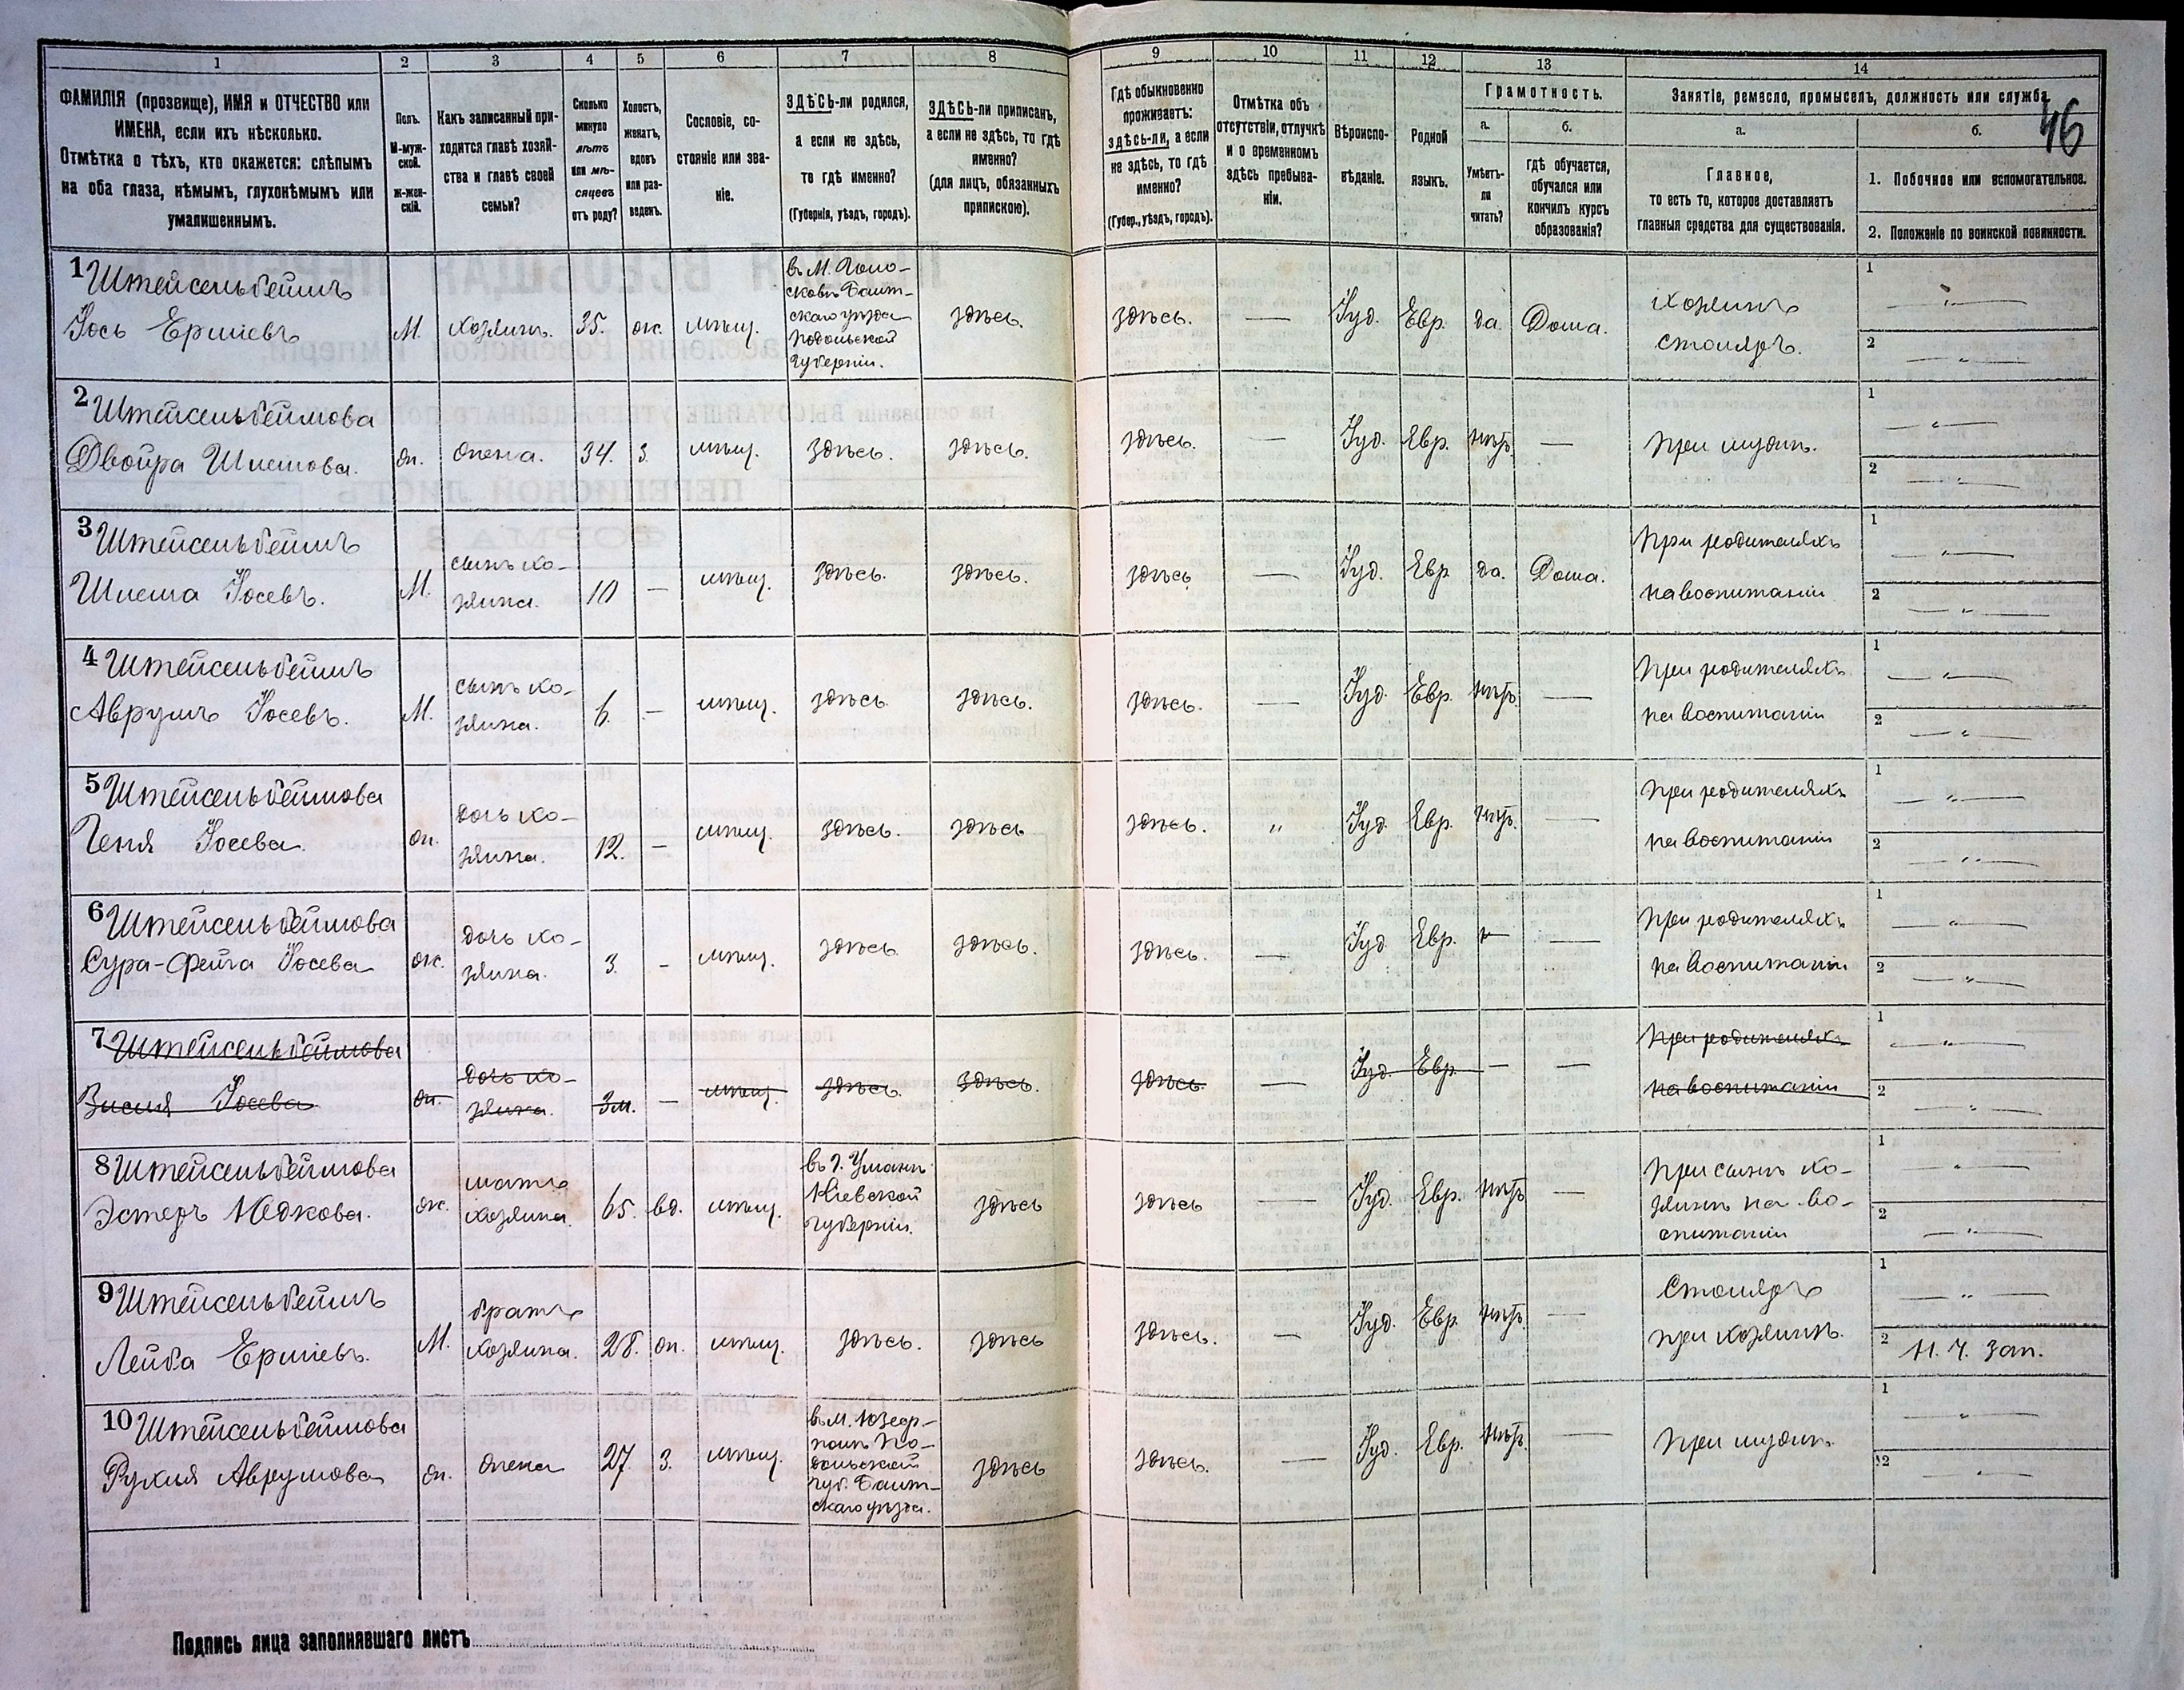 1
2
3
4
5
6
7
8
9
10
11
12
13
14
46
ФАМИЛІЯ (прозвище), ИМЯ и ОТЧЕСТВО или
ИМЕНА, если ихъ нѣсколько.
Отмѣтка о тѣхъ, кто окажется: слѣпымъ
на оба глаза, нѣмымъ, глухонѣмымъ или
умалишеннымъ.
Полъ.
М-муж-
ской.
ж-жен-
скій.
Какъ записанный при-
ходится главѣ хозяй-
ства и главѣ своей
семьи?
Сколько
минуло
лѣтъ
или мѣ-
сяцевъ
отъ роду?
Холостъ,
женатъ,
вдовъ
или раз-
веденъ.
Сословіе, со-
стояніе или зва-
ніе.
ЗДѢСЬ-ли родился,
а если не здѣсь,
то гдѣ именно?
(Губернія, уѣздъ, городъ).
ЗДѢСЬ-ли приписанъ,
а если не здѣсь, то гдѣ
именно?
(для лицъ, обязанныхъ
припискою).
Гдѣ обыкновенно
проживаетъ:
здѣсь-ли, а если
не здѣсь, то гдѣ
именно?
(Губер., уѣздъ, городъ).
Отмѣтка объ
отсутствіи, отлучкѣ
и о временномъ
здѣсь пребыва-
ніи.
Вѣроиспо-
вѣданіе.
Родной
языкъ.
Грамотность.
а.
Умѣетъ-
ли
читать?
б.
гдѣ обучается,
обучался или
кончилъ курсъ
образованія?
Занятіе, ремесло, промыселъ, должность или служба.
а.
Главное,
то есть то, которое доставляетъ
главныя средства для существованія.
б.
1. Побочное или вспомогательное.
2. Положеніе по воинской повинности.
1 Штейсельбеймъ
Іось Ершіевъ
М.
хозяинъ.
35.
ж.
мѣщ.
въ М. Голо-
сковѣ Балт-
скаго уѣзда
Подольской
губерніи.
здѣсь.
здѣсь.
—
Іуд.
Евр.
да.
Дома.
Хозяинъ
столяръ.
1 — " —
2 — " —
2 Штейсельбеймова
Двойра Шлемова.
ж.
жена.
34.
з.
мѣщ.
здѣсь.
здѣсь.
здѣсь.
—
Іуд.
Евр.
нѣтъ.
—
При мужѣ.
1 — " —
2 — " —
3 Штейсельбеймъ
Шлема Іосевъ.
М.
сынъ хо-
зяина.
10
—
мѣщ.
здѣсь.
здѣсь.
здѣсь
—
Іуд.
Евр
да.
Дома.
При родителяхъ
на воспитаніи
1 — " —
2 — " —
4 Штейсельбеймъ
Аврумъ Іосевъ.
М.
сынъ хо-
зяина.
6.
—
мѣщ.
здѣсь.
здѣсь.
здѣсь.
—
Іуд.
Евр.
нѣтъ.
—
При родителяхъ
на воспитаніи
1 — " —
2 — " —
5 Штейсельбеймова
Геня Іосева.
ж.
дочь хо-
зяина.
12.
—
мѣщ.
здѣсь.
здѣсь
здѣсь.
"
Іуд.
Евр.
нѣтъ.
—
При родителяхъ
на воспитаніи
1 — " —
2 — " —
6 Штейсельбеймова
Сура-Фейга Іосева
ж.
дочь хо-
зяина.
3.
-
мѣщ.
здѣсь
здѣсь.
здѣсь.
—
Іуд
Евр.
—
При родителяхъ
на воспитаніи
1 — " —
2 — " —
7 Штейсельбеймова
Іосева
ж.
дочь хо-
зяина.
3м.
—
мѣщ.
здѣсь.
здѣсь.
здѣсь
—
Іуд.
Евр.
—
—
При родителяхъ
на воспитаніи
1 — " —
2 — " —
8 Штейсельбеймова
Эстеръ
ж.
мать
хозяина.
65.
вд.
мѣщ.
въ г. Умани
Кіевской
губерніи.
здѣсь
здѣсь
—
Іуд.
Евр.
нѣтъ
—
При сынѣ хо-
зяинѣ на во-
спитаніи
1 — " —
2 — " —
9 Штейсельбеймъ
Лейба Ершіевъ.
М.
братъ
хозяина.
28.
ж.
мѣщ.
здѣсь.
здѣсь
здѣсь.
—
Іуд.
Евр.
нѣтъ.
—
Столяръ
при хозяинѣ.
1 — " —
2 зап.
10 Штейсельбеймова
Рухля Аврумова
ж.
жена
27.
з.
мѣщ.
въ м. Юзефъ-
полѣ По-
дольской
губ. Балт-
скаго уѣзда.
здѣсь
здѣсь.
—
Іуд.
Евр.
нѣтъ.
—
При мужѣ.
1 — " —
2 — " —
Подпись лица заполнявшаго листъ